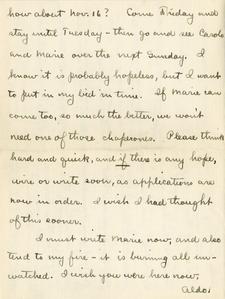 how about Nov. 16? Come Friday and
stay until Tuesday - then go and see Carol
and Marie over the next Sunday. I
know it is probably hopeless, but I want
to put in my bid in time. If Marie can
come too, so much the better, we won't
need one of those chaperones. Please think
hard and quick, and if there is any hope,
wire or write soon, as applications are
now in order. I wish I had thought
of this sooner.
I must write Marie now, and also
tend to my fire - it is burning all un-
watched. I wish you were here now,
Aldo